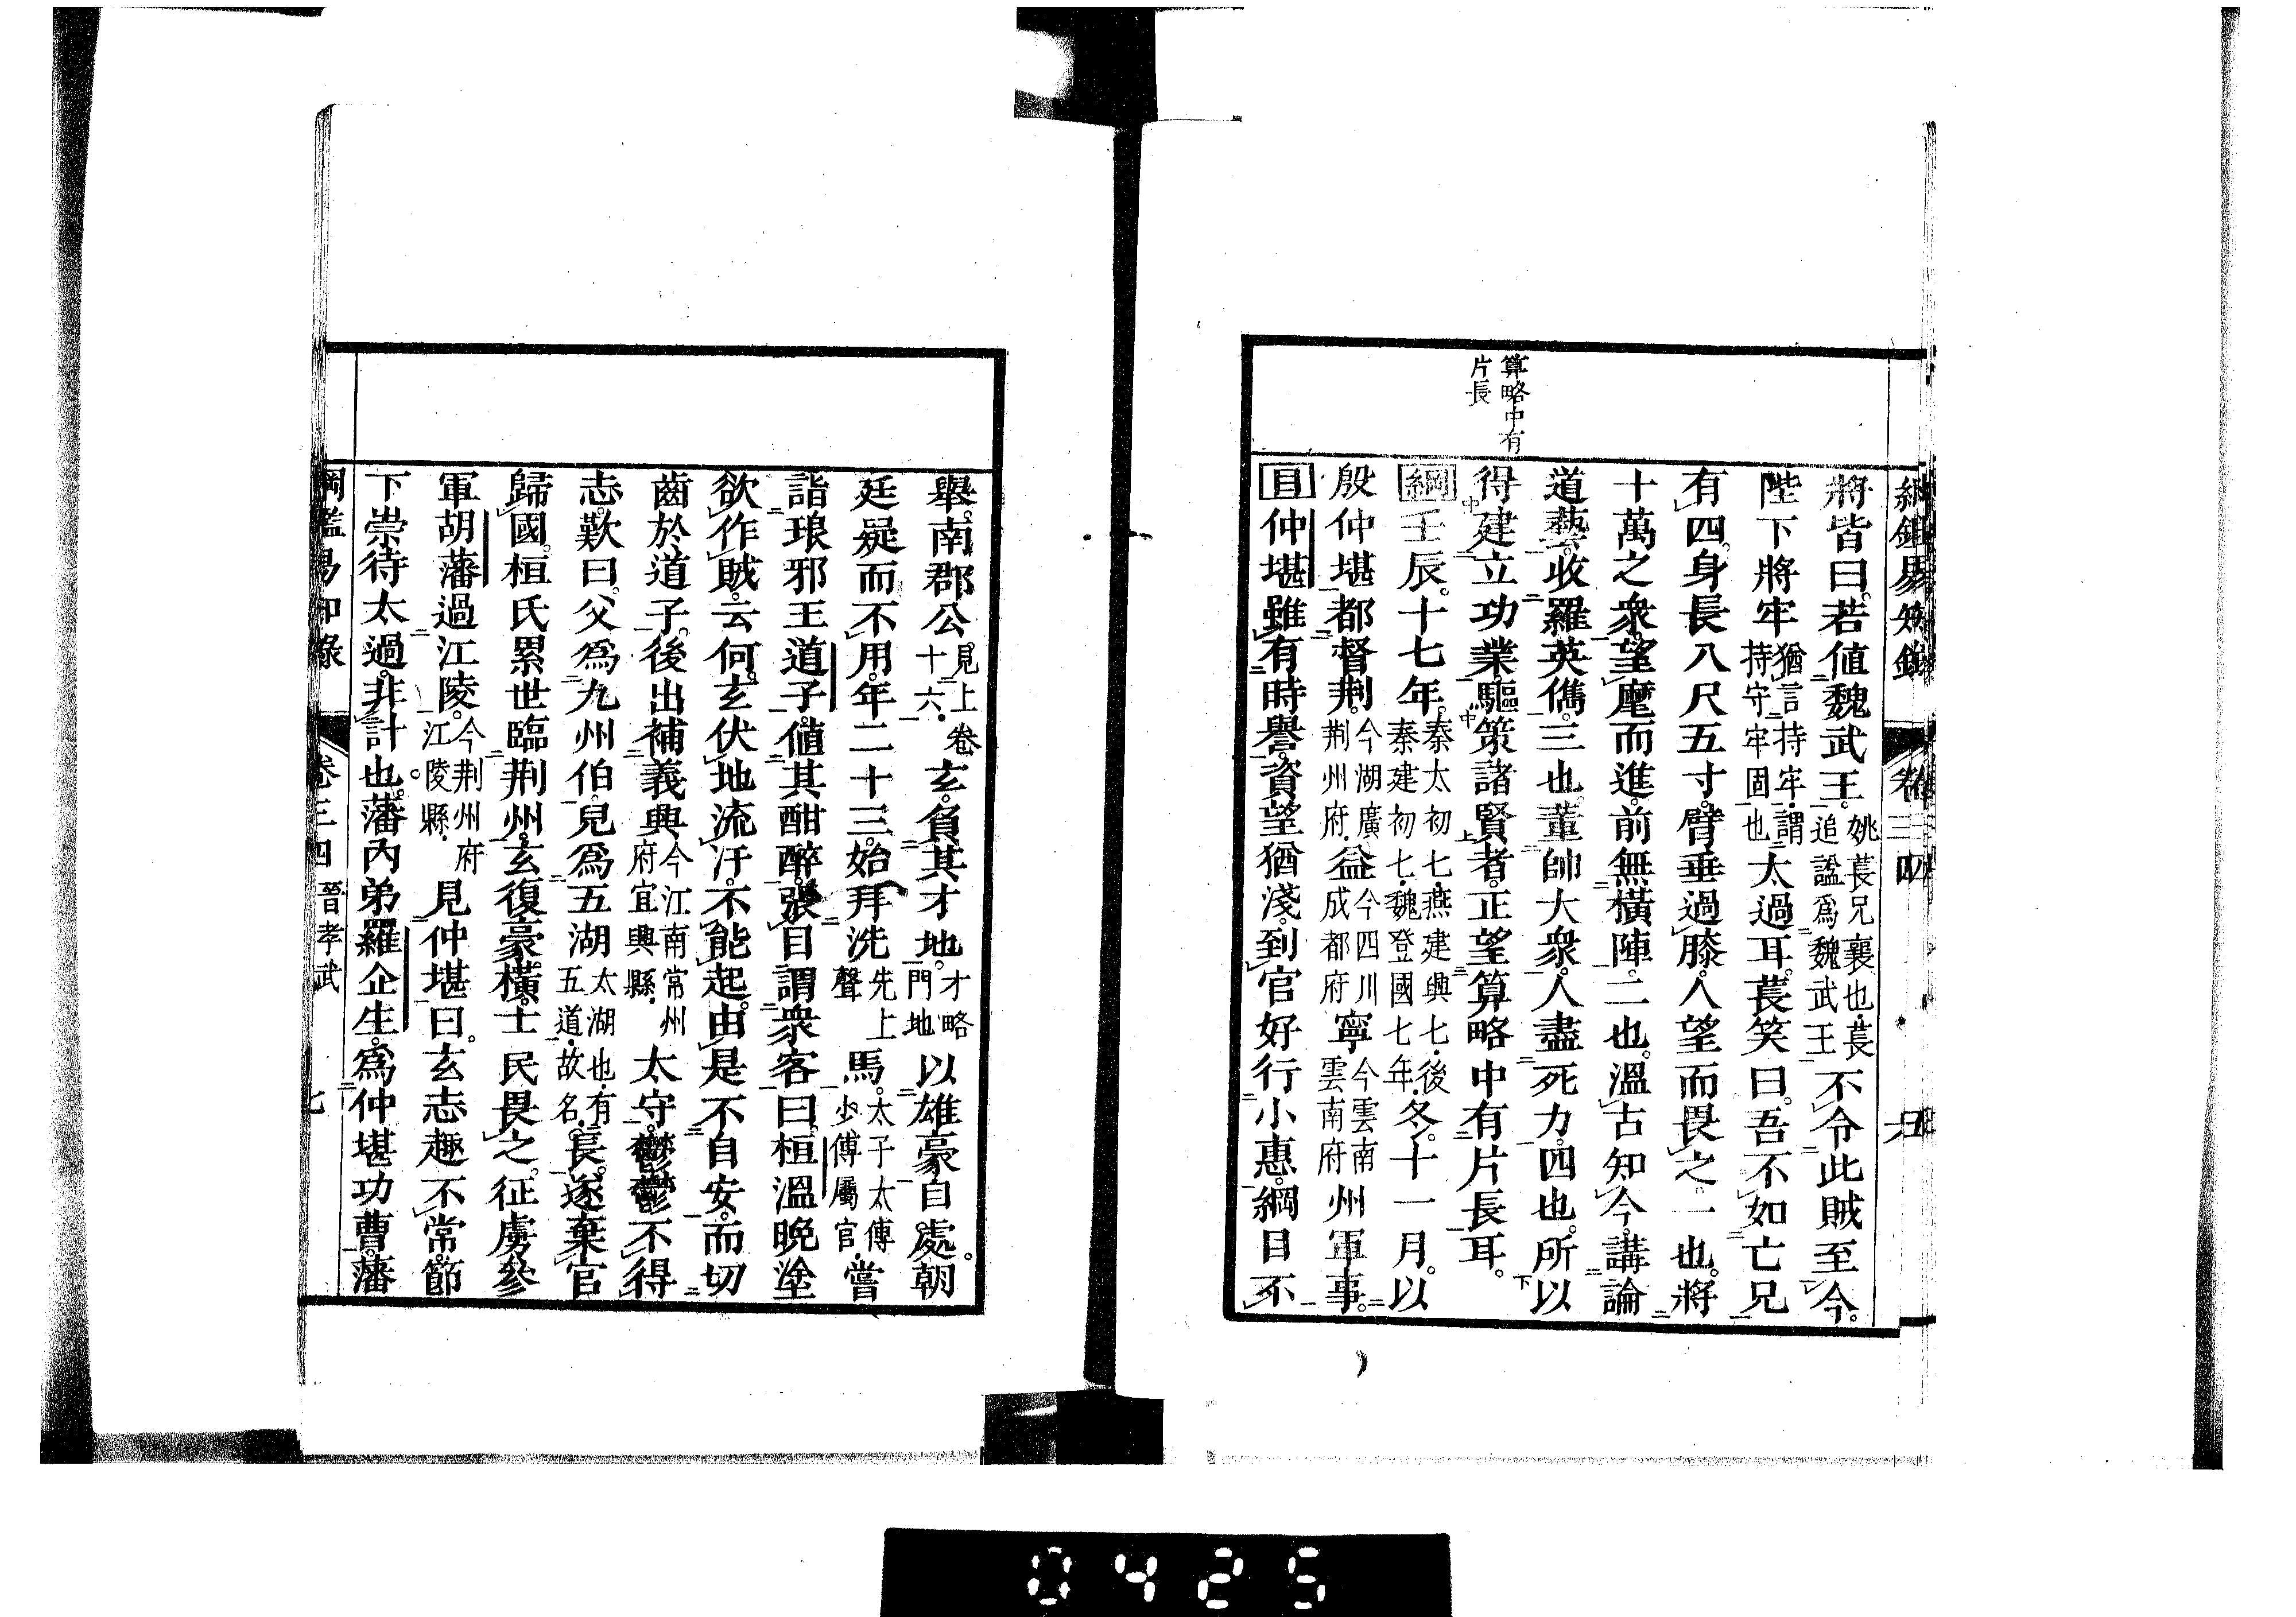 綱鑑易知錄 卷三四
算略中有
片長
將皆曰。若値魏武王。姚萇兄襄也。萇追諡爲魏武王不令此賊至今。
陛下將牢猶言持牢。謂持守牢固也太過耳。萇笑曰。吾不如亡兄
有四。身長八尺五寸。臂垂過膝。人望而畏之。一也。將
十萬之衆。望麾而進。前無橫陣。二也。溫古知今。講論
道藝。收羅英儁。三也。董帥大衆。人盡死力。四也。所以
得建立功業。驅策諸賢者。正望算略中有片長耳。
綱壬辰。十七年。秦太初七。燕建興七。後秦建初七。魏登國七年。冬。十一月。以
殷仲堪都督荆。今湖廣荆州府。益今四川成都府寧今雲南雲南府州軍事。
目仲堪雖有時譽。資望猶淺。到官好行小惠。綱目不
舉。南郡公。見上卷十六。玄。負其才地。才略門地以雄豪自處。朝
廷疑而不用。年二十三。始拜洗先上聲馬。太子太傅少傅屬官。嘗
詣琅邪王道子。値其酣醉。張目謂衆客曰。桓溫晚塗
欲作賊。云何。玄伏地流汗。不能起。由是不自安。而切
齒於道子。後出補義興今江南常州府宜興縣。太守。鬱鬱不得
志。歎曰。父爲九州伯。兒爲五湖太湖也。有五道。故名。長。遂棄官
歸國。桓氏累世臨荆州。玄復豪橫。士民畏之。征虜參
軍胡藩過江陵。今荆州府江陵縣。見仲堪曰。玄志趣不常。節
下崇待太過。非計也。藩內弟羅企生。爲仲堪功曹。藩
綱鑑易知錄 卷三四 晉孝武 七